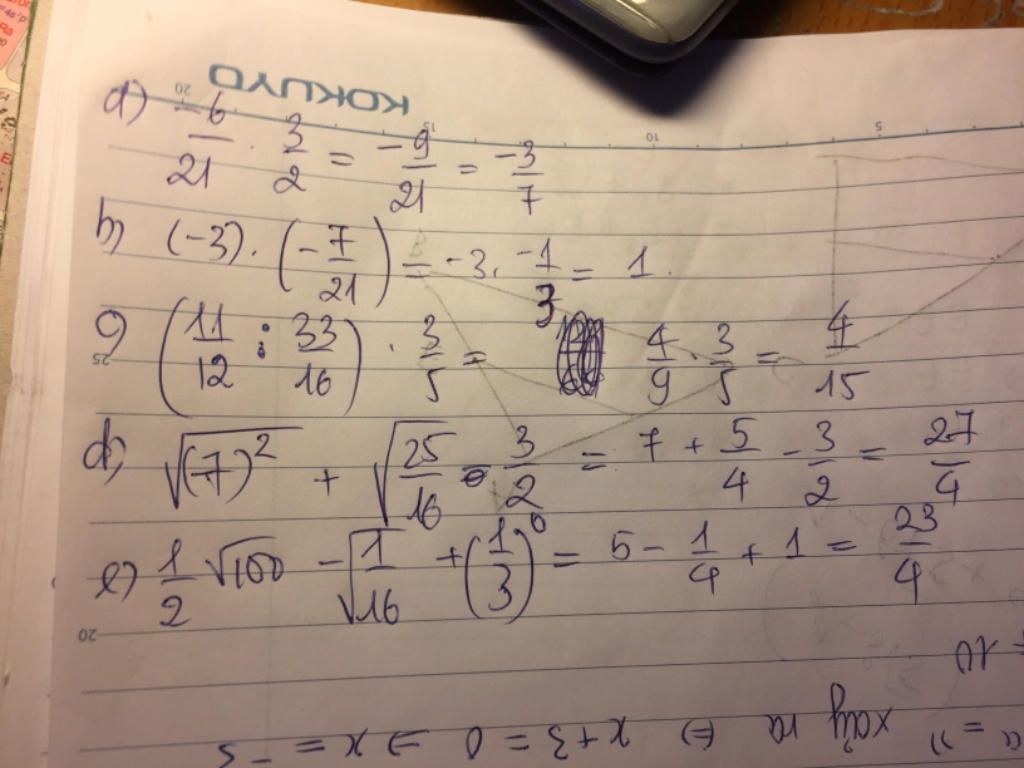 KOKUYO
20 15 10 5
a) -6/21 . 3/2 = -9/21 = -3/7
b) (-3) . (-7/21) = -3 . -1/3 = 1.
c) (11/12 : 33/16) . 3/5 = 4/9 . 3/5 = 4/15
25
d) √(-7)² + √25/16 - 3/2 = 7 + 5/4 - 3/2 = 27/4
e) 1/2 √100 - √1/16 + (1/3)⁰ = 5 - 1/4 + 1 = 23/4
20
10
" = " xảy ra ⇔ x + 3 = 0 ⇒ x = -3